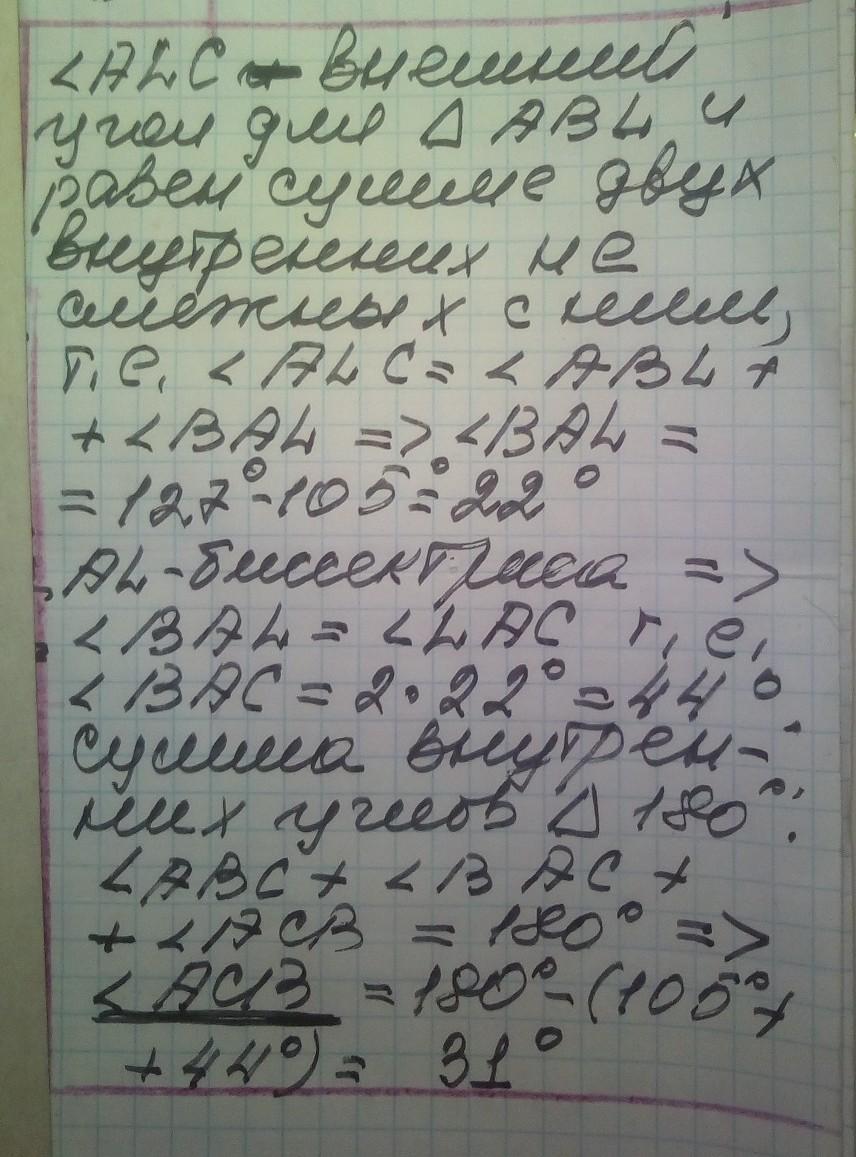 <ALC - внешний
угол для Δ ABL и
равен сумме двух
внутренних не
смежных с ним,
т.е. <ALC = <ABL +
+ <BAL => <BAL =
= 127°-105°=22°
AL-биссектриса =>
<BAL = <LAC т.е.
<BAC = 2·22° = 44°.
сумма внутрен-
них углов Δ 180°:
<ABC + <BAC +
+ <ACB = 180° =>
<ACB = 180°-(105°+
+44°) = 31°